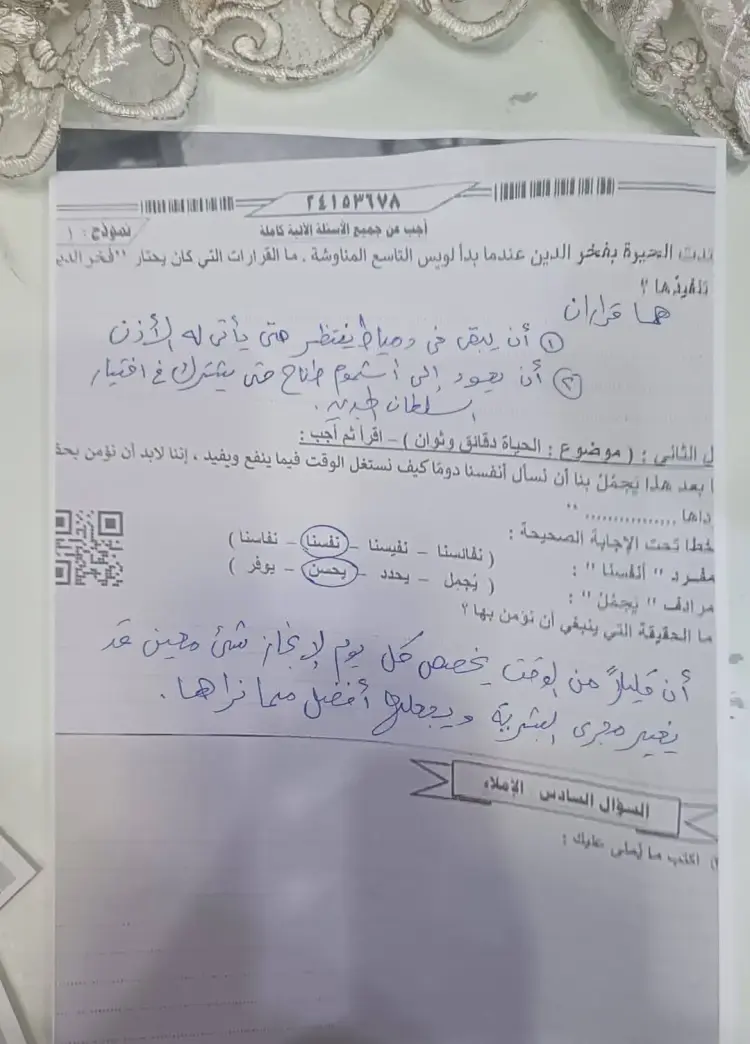 ٢٤١٥٣٦٧٨
أجب عن جميع الأسئلة الآتية كاملة
نموذج : ١
الحيرة بفخر الدين عندما بدأ لويس التاسع المناوشة . ما القرارات التي كان يحتار "فخر الدين
تنفيذها ؟
هما قراران
١ أن يبقى فى دمياط ينتظر حتى يأتى له الأذن
٢ أن يعود إلى أشموم طناح حتى يشترك فى اختيار
السلطان الجديد .
ل الثاني : ( موضوع : الحياة دقائق وثوان ) – اقرأ ثم أجب :
بعد هذا يَجمُلُ بنا أن نسأل أنفسنا دومًا كيف نستغل الوقت فيما ينفع ويفيد ، إننا لابد أن نؤمن
............... "
خطا تحت الإجابة الصحيحة :
مفرد " أنفسنا " : ( نفائسنا – نفيسنا – نفسنا – نفاسنا )
مرادف " يَجمُلُ " : ( يُجمل – يحدد – يحسن – يوفر )
ما الحقيقة التي ينبغي أن نؤمن بها ؟
أن قليلاً من الوقت يخصص كل يوم لإنجاز شئ معين قد
يغير مجرى البشرية ويجعلها أفضل مما نراها .
السؤال السادس الإملاء
اكتب ما يُملى عليك :